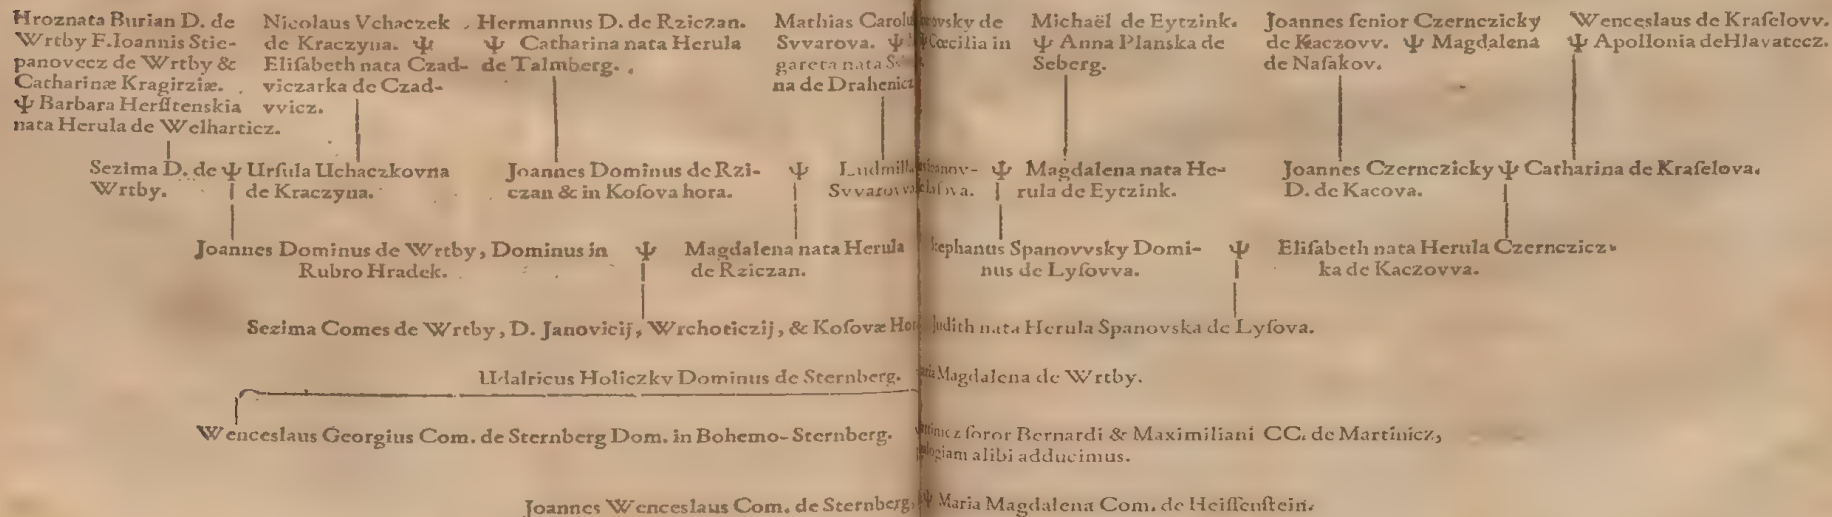 Hroznata Burian D. de
Wrtby F. Ioannis Stie-
panovecz de Wrtby &
Catharinæ Kragirziæ.
Ψ Barbara Herſſtenskia
nata Herula de Welharticz.
Nicolaus Vchaczek
de Kraczyna. Ψ
Eliſabeth nata Czad-
viczarka de Czad-
vvicz.
Hermannus D. de Rziczan.
Ψ Catharina nata Herula
de Talmberg.
Mathias Carolus
Svvarova. Ψ
gareta nata
na de Drahenicz
de
Cœcilia in
Michaël de Eytzink.
Ψ Anna Planska de
Seberg.
Joannes ſenior Czernczicky
de Kaczovv. Ψ Magdalena
de Naſakov.
Wenceslaus de Kraſelovv.
Ψ Apollonia de Hlavatecz.
Sezima D. de Ψ Urſula Uchaczkovna
Wrtby. de Kraczyna.
Joannes Dominus de Rzi- Ψ Ludmilla
czan & in Koſova hora. Svvarovva
Ψ Magdalena nata He-
rula de Eytzink.
Joannes Czernczicky Ψ Catharina de Kraſelova.
D. de Kacova.
Joannes Dominus de Wrtby, Dominus in Ψ Magdalena nata Herula
Rubro Hradek. de Rziczan.
Spanovvsky Domi- Ψ Eliſabeth nata Herula Czernczicz-
nus de Lyſovva. ka de Kaczovva.
Sezima Comes de Wrtby, D. Janovicij, Wrchoticzij, & Koſovæ Judith nata Herula Spanovska de Lyſova.
Udalricus Holiczky Dominus de Sternberg. Magdalena de Wrtby.
Wenceslaus Georgius Com. de Sternberg Dom. in Bohemo-Sternberg. ſoror Bernardi & Maximiliani CC. de Martinicz,
alibi adducimus.
Joannes Wenceslaus Com. de Sternberg, Ψ Maria Magdalena Com. de Heiſſenſtein.